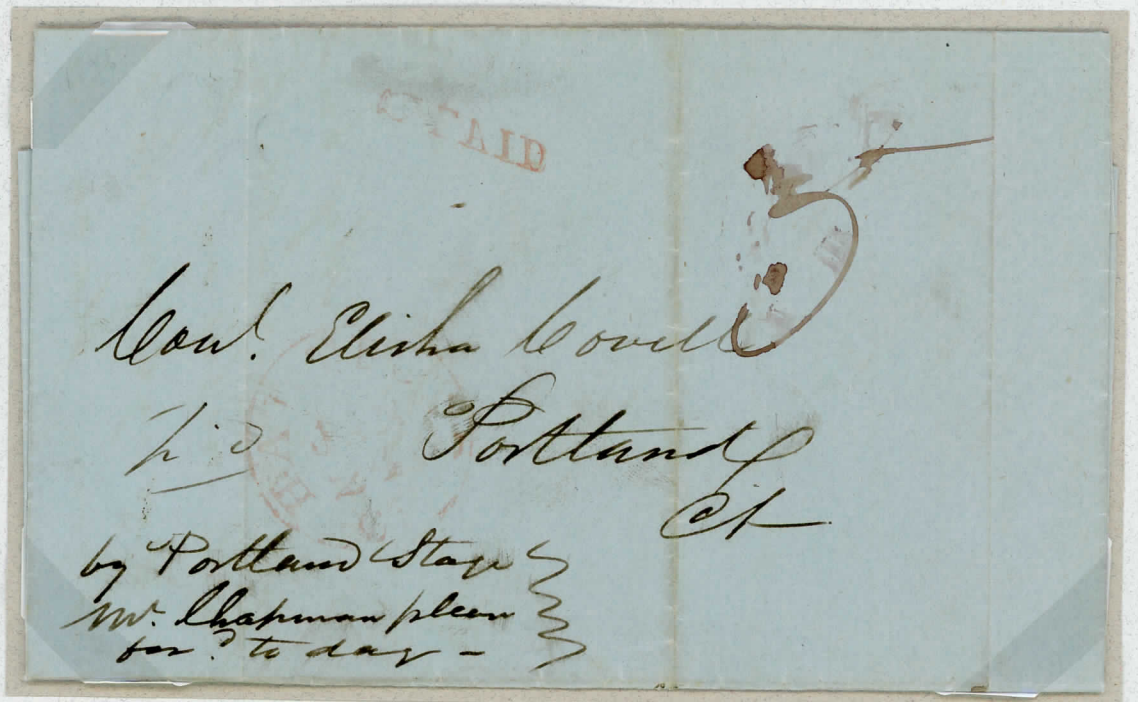 PAID
5
Conl. Elisha Covell
Portland
Ct
by Portland Stage
Mr. Chapman please
for.d to day -